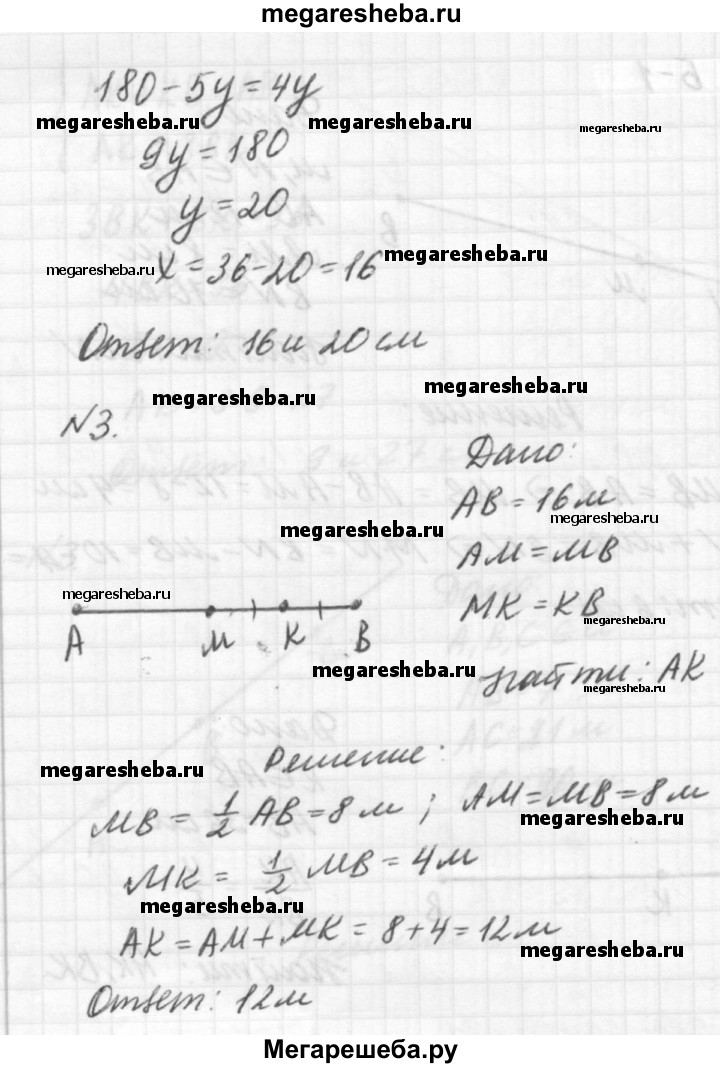 megaresheba.ru
180-5y=4y
megaresheba.ru megaresheba.ru megaresheba.ru
9y=180
y=20
megaresheba.ru x=36-20=16 megaresheba.ru
Ответ: 16 и 20 см
megaresheba.ru megaresheba.ru
№3.
Дано:
AB=16м
megaresheba.ru megaresheba.ru
AM=MB
megaresheba.ru MK=KB
megaresheba.ru
A M K B
megaresheba.ru найти: AK
megaresheba.ru
Решение:
megaresheba.ru
MB = 1/2 AB=8м; AM=MB=8м
megaresheba.ru
MK = 1/2 MB=4м
megaresheba.ru
AK=AM+MK=8+4=12м
megaresheba.ru
Ответ: 12м
megaresheba.ru
Мегарешеба.ру